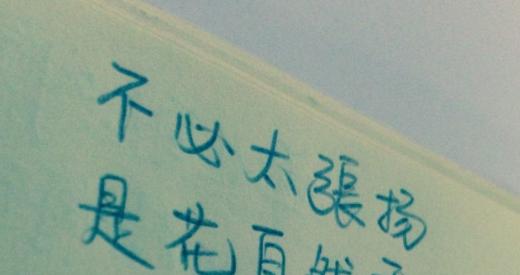 不必太張扬
是花自然